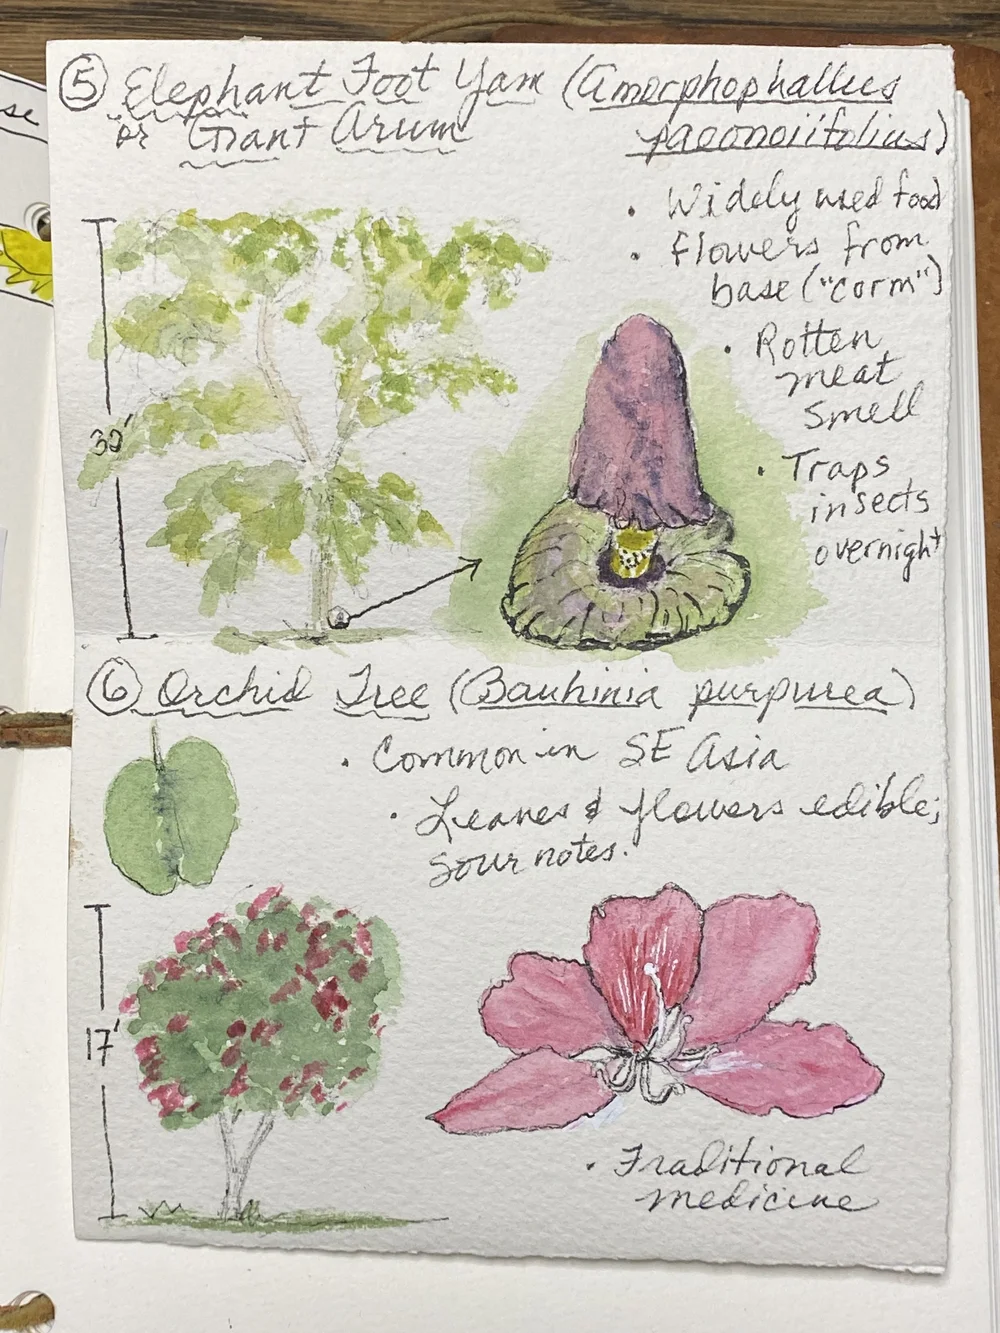 se
⑤ Elephant Foot Yam (Amorphophallus
or Giant Arum paeonoiifolius)
• Widely used food
• flowers from
base ("corm")
• Rotten
meat
smell
• Traps
insects
overnight
30'
⑥ Orchid Tree (Bauhinia purpurea)
• Common in SE Asia
• Leaves & flowers edible;
sour notes.
17'
• Traditional
medicine